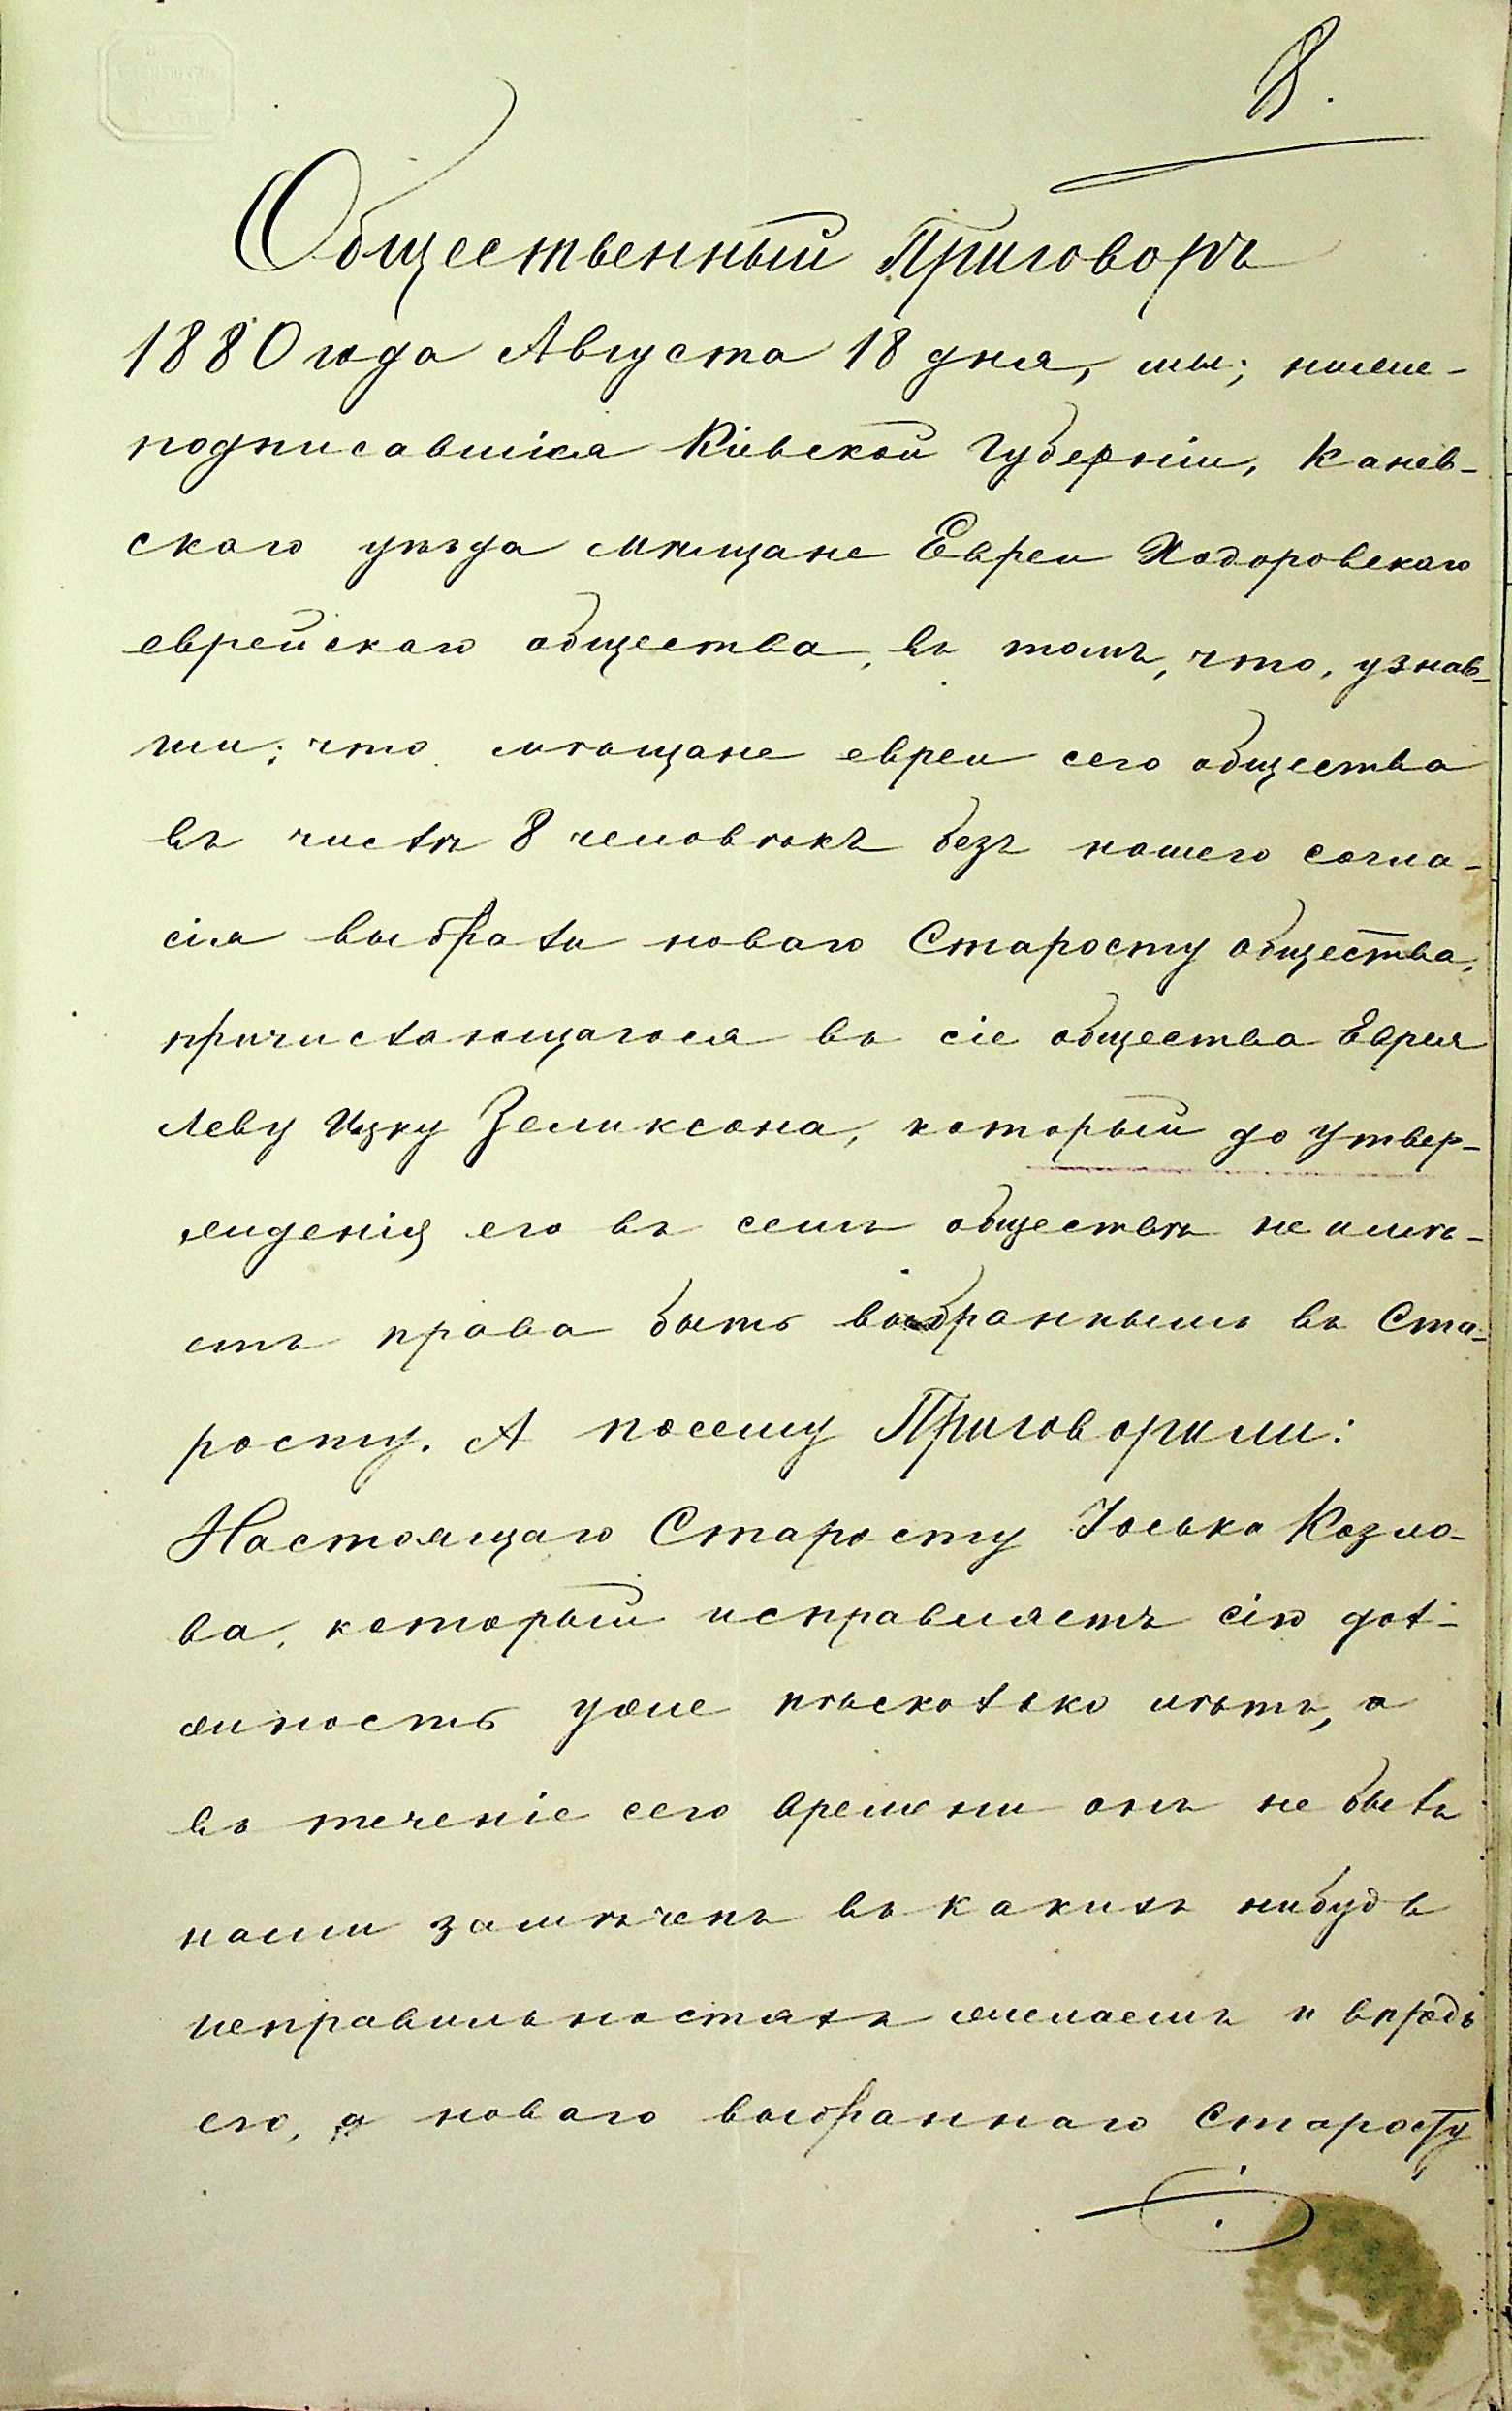 8.
Общественный Приговоръ
1880 года Августа 18 дня, мы; ниже-
подписавшіяся Кіевской Губерніи, Канев-
скаго уѣзда мѣщане Евреи Ходоровскаго
еврейскаго общества, въ томъ, что, узнав-
ши; что мѣщане евреи сего общества
въ числѣ 8 человѣкъ безъ нашего согла-
сія выбрали новаго Старосту общества,
причисляющагося въ сіе общества Еврея
Леву Ицку Зеликсона, который до утвер-
жденія его въ семъ обществѣ не имѣ-
етъ права быть выбраннымъ въ Ста-
росту. А посему Приговорили:
Настоящаго Старосту Іоська Козло-
ва, который исправляетъ сію дол-
жность уже нѣсколько лѣтъ, а
въ теченіе сего времени онъ не былъ
нами замѣченъ въ какихъ нибудь
неправильностяхъ желаемъ и впредь
его, а новаго выбраннаго Старосту